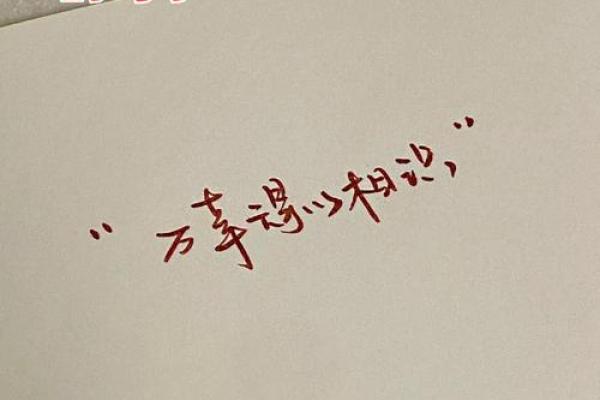 "万幸得以相识，"